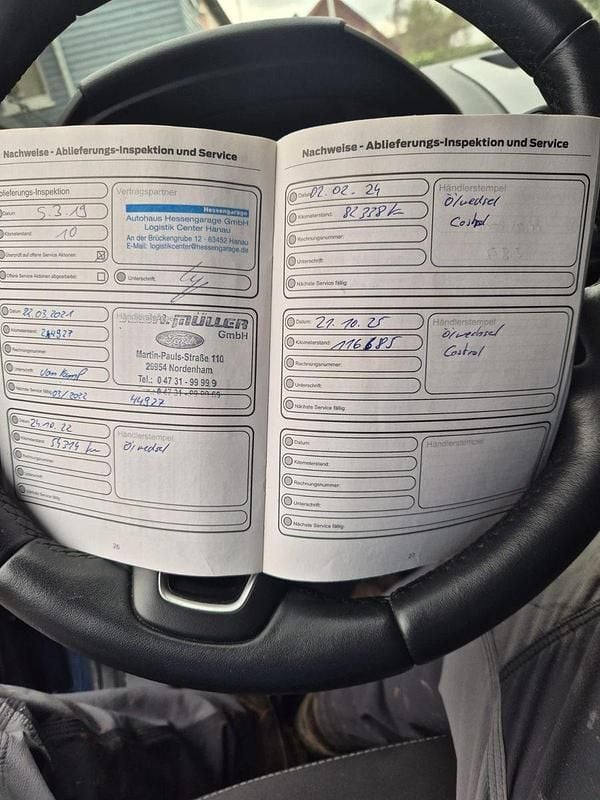 Nachweise - Ablieferungs-Inspektion und Service
blieferungs-Inspektion
Datum 5.3.19
Kilometerstand 10
Überprüft auf offene Service Aktionen:
Offene Service Aktionen abgearbeitet:
Vertragspartner
Hessengarage
Autohaus Hessengarage GmbH
Logistik Center Hanau
An der Brückengrube 12 - 63452 Hanau
E-Mail: logistikcenter@hessengarage.de
Unterschrift:
Datum: 22.03.2021
Kilometerstand:
Rechnungsnummer:
Unterschrift:
Nächste Service fällig: 03/2022
44927
MÜLLER
GmbH
Ford
Martin-Pauls-Straße 110
26954 Nordenham
Tel.: 0 47 31 - 99 99 9
Datum: 24.10.22
Kilometerstand:
Rechnungsnummer:
Unterschrift:
Nächste Service fällig:
Händlerstempel
Ölwechsel
26
Nachweise - Ablieferungs-Inspektion und Service
Datum: 02.02.24
Kilometerstand: 82 378 km
Rechnungsnummer:
Unterschrift:
Nächste Service fällig:
Händlerstempel
Ölwechsel
Castrol
Datum: 21.10.25
Kilometerstand: 116685
Rechnungsnummer:
Unterschrift:
Nächste Service fällig:
Händlerstempel
Ölwechsel
Castrol
Datum:
Kilometerstand:
Rechnungsnummer:
Unterschrift:
Nächste Service fällig:
Händlerstempel
27